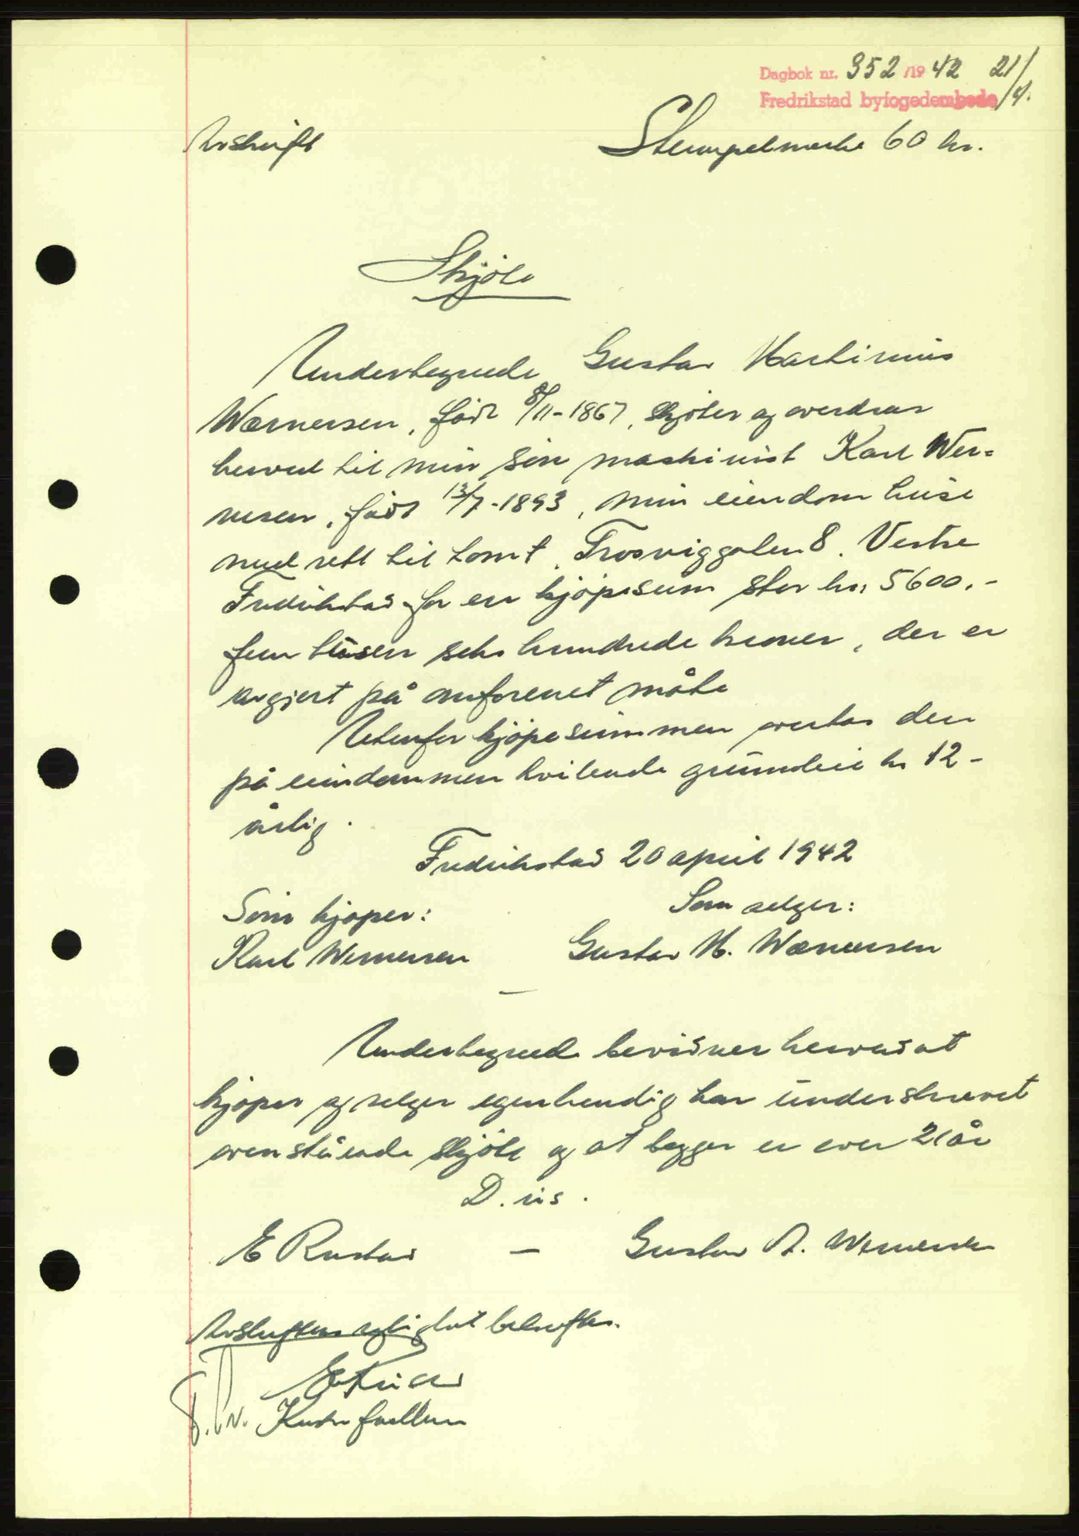 Dagbok nr. 952 /19 42 21/4.
Fredrikstad byfogedembede
Avskrift Stempelmerke 60 kr.
Skjöte
Undertegnede Gustav Martinius
Wærnersen, född 8/11-1867, skjöter og overdrar
herved til min sön maskinist Karl Wer-
nersen, född 13/7-1893, min eiendom huse
med rett til tomt, Trosviggaten 8. Vestre
Fredrikstad for en kjöpesum stor kr. 5600.-
fem tusen seks hundrede kroner, der er
avgjort på omforenet måte
Utenfor kjöpesummen overtas den
på eiendommen hvilende grunnleie kr 12 -
årlig.
Fredrikstad 20 april 1942
Som kjöper: Som selger:
Karl Wernersen Gustav M. Wærnersen
—
Undertegnede bevidner herved at
kjöper og selger egenhendig har underskrevet
ovenstående skjöte og at begge er over 21 år
D. u.s.
E Rustad — Gustav A. Wernersen
Avskriftens rigtighet bekreftes.